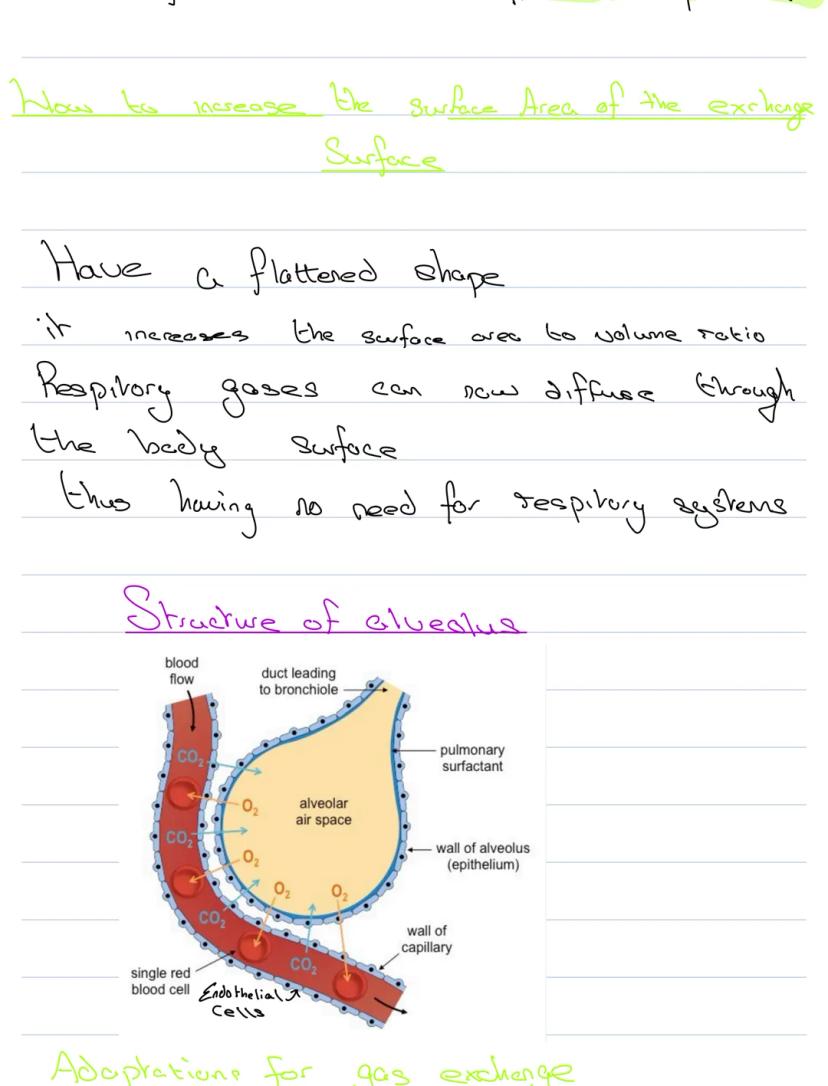 How to increase the surface Area of the exchange
Surface
Have a flattered shape
it increases the surface area to volume ratio
Respitory gases can now diffuse through
the body surface
thus having no need for respitory systems
Structure of alveolus
blood
flow
duct leading
to bronchiole
pulmonary
surfactant
CO2
O2
alveolar
air space
CO2
O2
wall of alveolus
(epithelium)
O2
O2
CO2
wall of
capillary
CO2
single red
blood cell
Endothelial
Cells
Adaptations for gas exchange